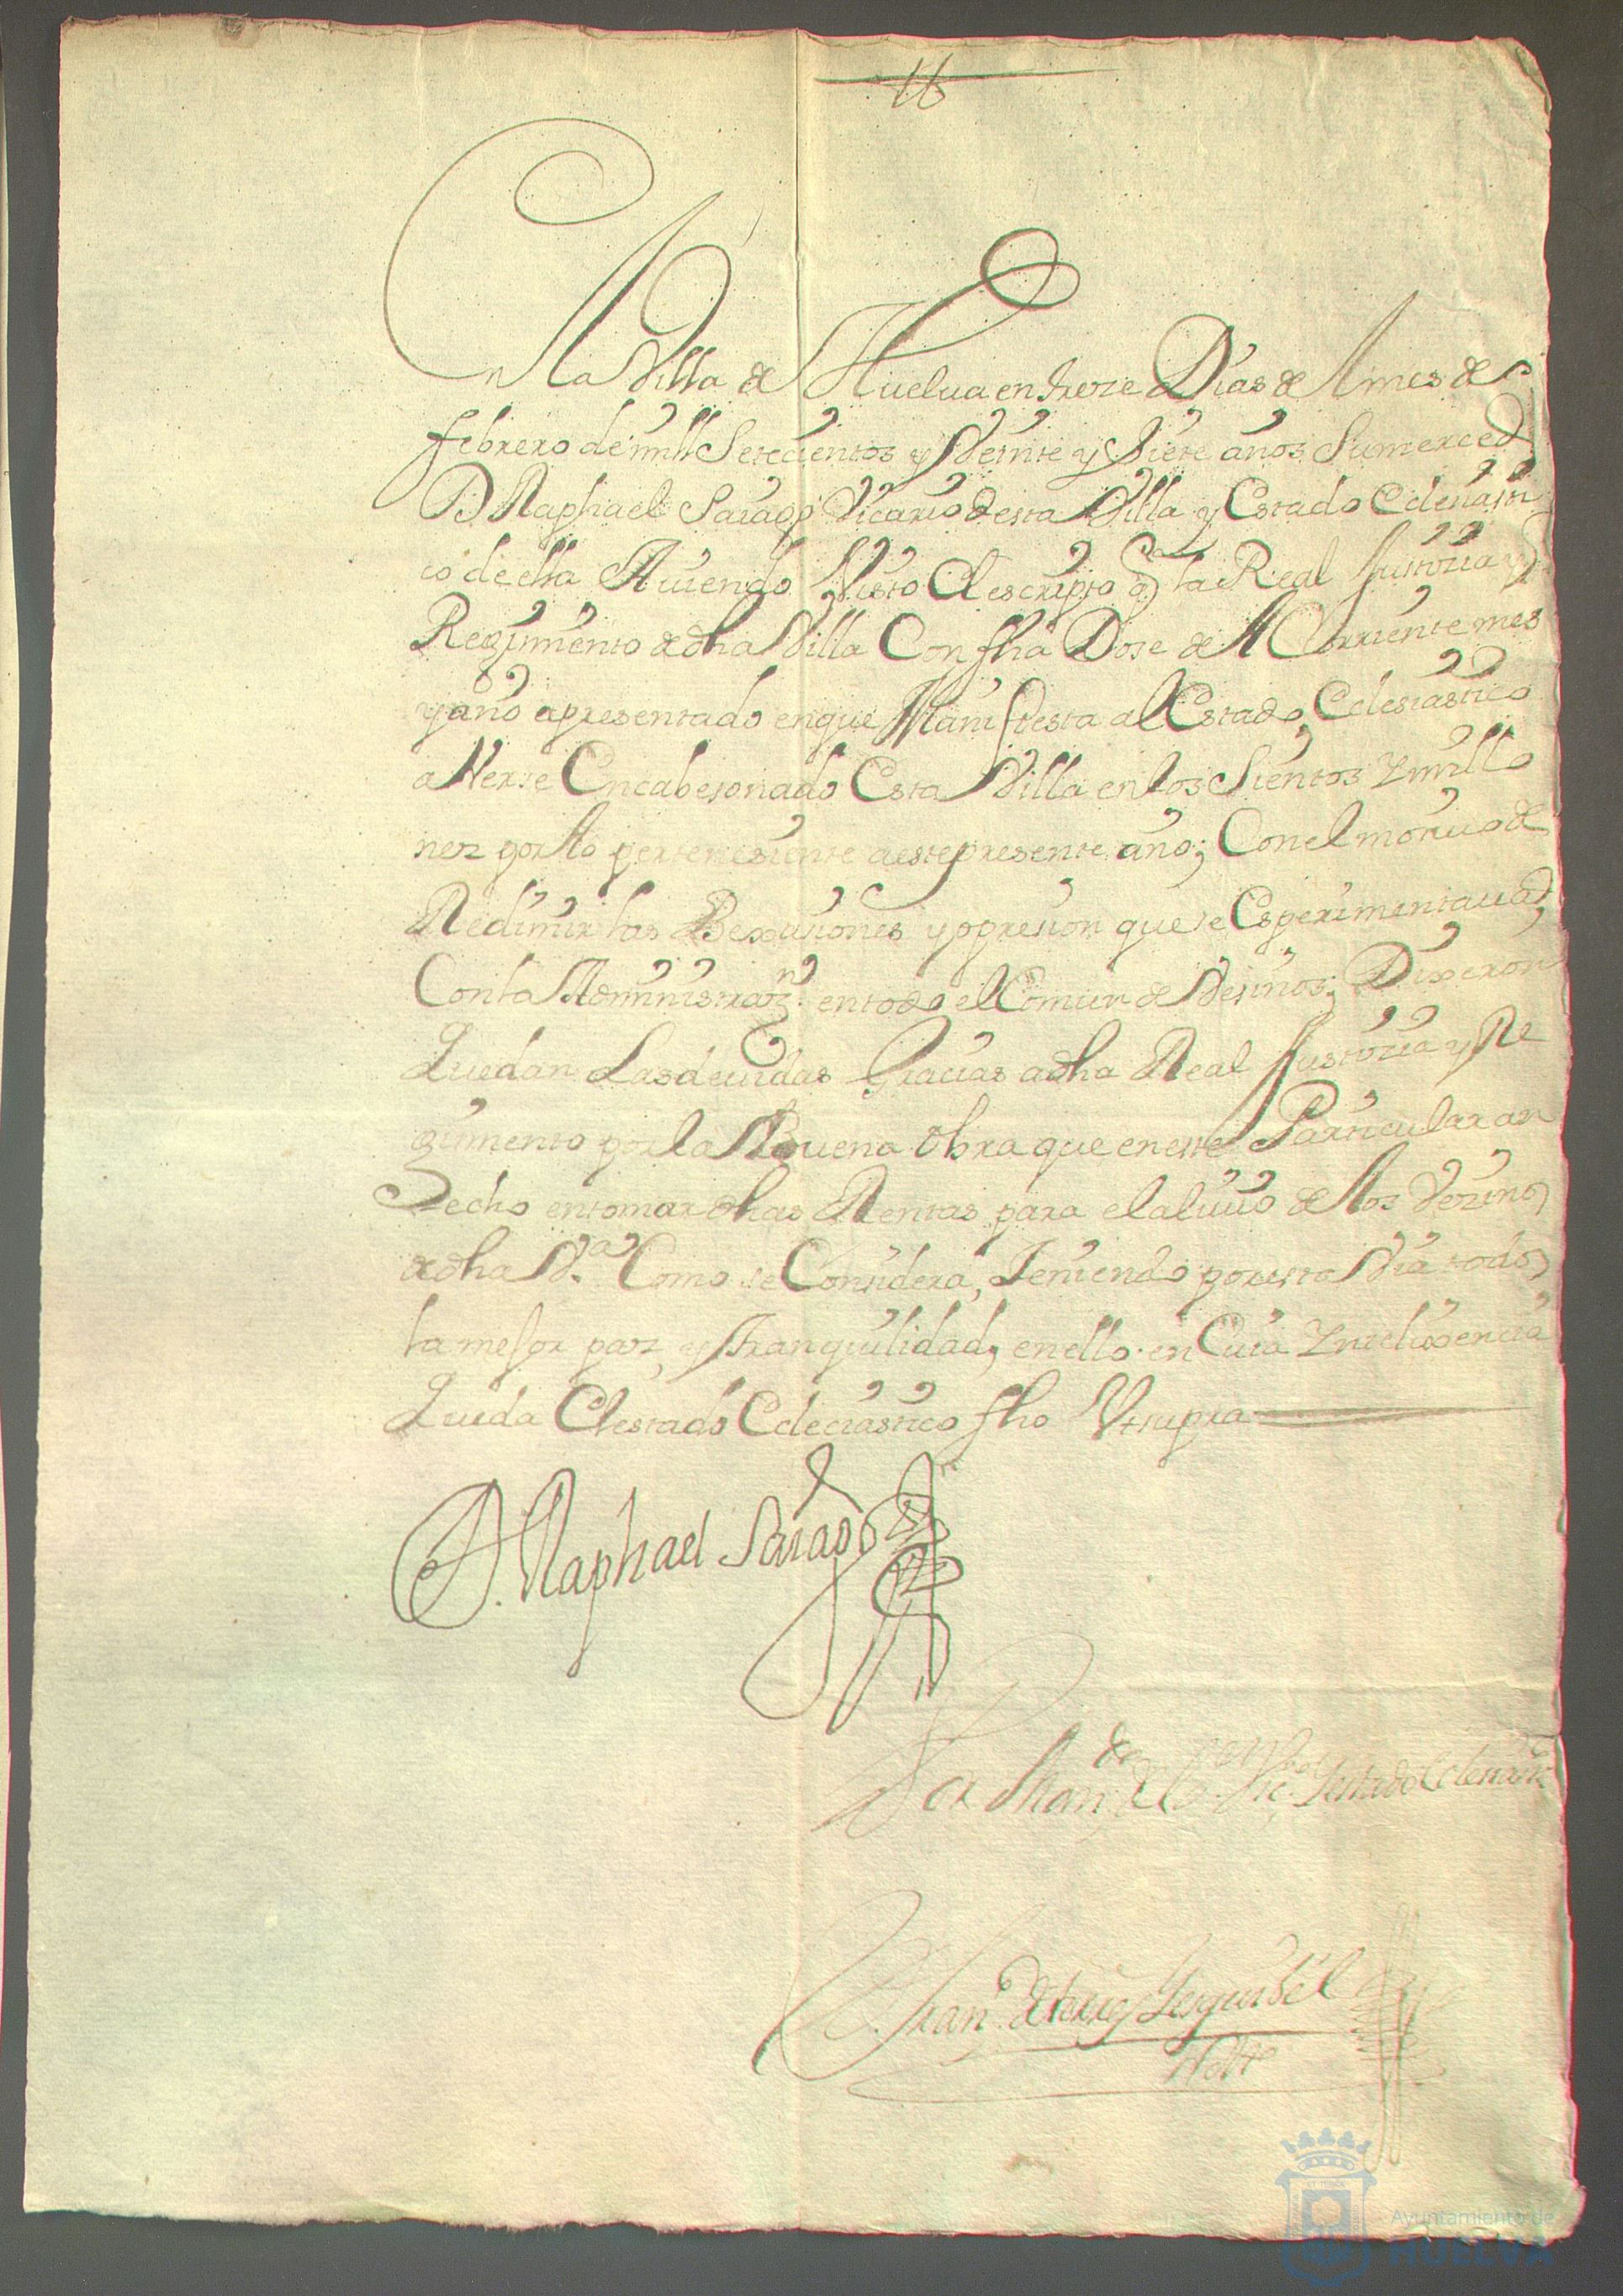 16
En la Villa de Huelua en treze Dias de el mes de
febrero de mill Setecientos y Veinte y Siete años Sumerced
D Raphael Saiago Vicario desta Villa y Estado Eclesiasti
co de ella Auiendo Visto El escripto q la Real Justizia y
Regimiento de dha Villa Con fha Dose de el Corriente mes
y año a presentado en que Manifiesta al Estado Eclesiastico
a Verse Encabesonado Esta Villa en los Sientos y millo
nes por lo pertenesiente a este presente año; Con el motiuo de
Redimir las Bexasiones y opresion que se Esperimentauan
Con la Administraz.n en todo el Comun de Vesinos; Dixeron
Quedan Las deuidas Gracias a dha Real Justizia y Re
gimiento por la Buena Obra que en este Particular an
Hecho en tomar dhas Rentas para el aliuio de los Vezinos
de dha V.a Como se Considera, Teniendo por esta Via todos
la mejor paz, y tranquilidad, en ello en Cuia Yntelixencia
Queda El estado Eclesiastico fho Vt supra
D. Raphael Saiago
Por Man.do del S.or Vic.o y estado Eclesiastic
Fran.co de
Not.o
Ayuntamiento de
HUELVA